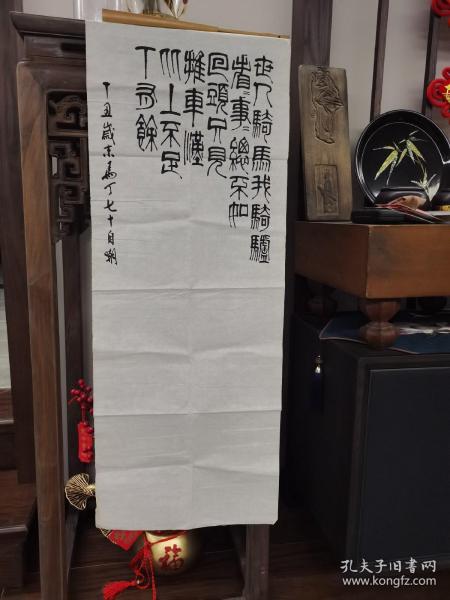 世人騎馬我騎驢
事〻總不如
回頭只見
推車漢
比上不足
下有餘
丁丑歲末馬丁七十自嘲
福
孔夫子旧书网
www.kongfz.com